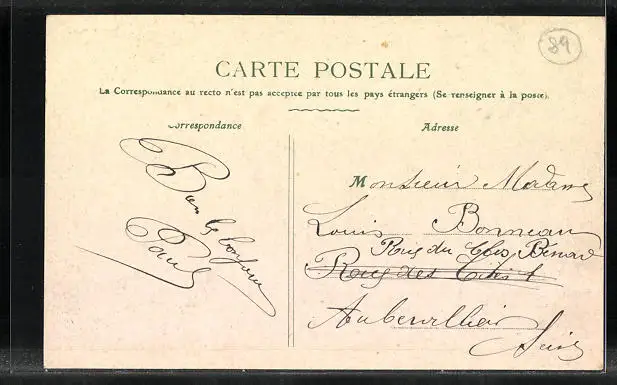 89
CARTE POSTALE
La Correspondance au recto n'est pas acceptée par tous les pays étrangers (Se renseigner à la poste).
Correspondance
Adresse
Bons
Paul
Monsieur Madame
Louis Bonneau
Rue du Clos Bénard
Rue des Cités
Aubervilliers
Seine